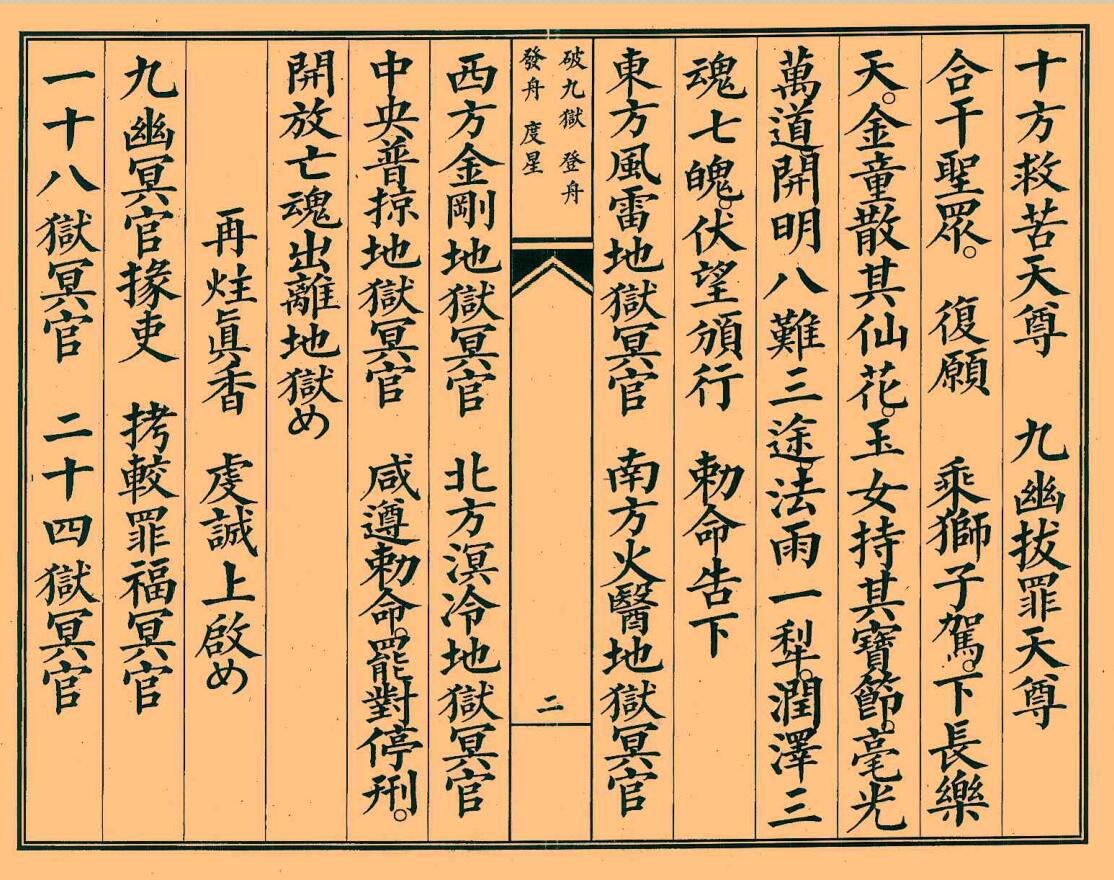 十方救苦天尊　九幽拔罪天尊
合干聖眾。　復願　乘獅子駕。下長樂
天。金童散其仙花。玉女持其寶節。毫光
萬道。開明八難三途。法雨一犁。潤澤三
魂七魄。伏望頒行　勅命告下
東方風雷地獄冥官　南方火醫地獄冥官
破九獄　登舟
發舟　度星
二
西方金剛地獄冥官　北方溟冷地獄冥官
中央普掠地獄冥官　咸遵勅命。罷對停刑。
開放亡魂出離地獄め
再炷眞香　虔誠上啟め
九幽冥官掾吏　拷較罪福冥官
一十八獄冥官　二十四獄冥官